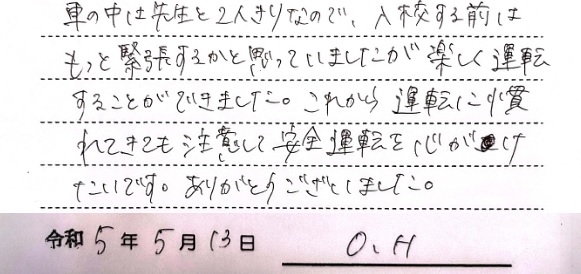 車の中は先生と2人きりなので、入校する前は
もっと緊張するかと思っていましたが楽しく運転
することができました。これから運転に慣
れてきても注意して安全運転を心がけ
たいです。ありがとうございました。
令和5年5月13日 O.H